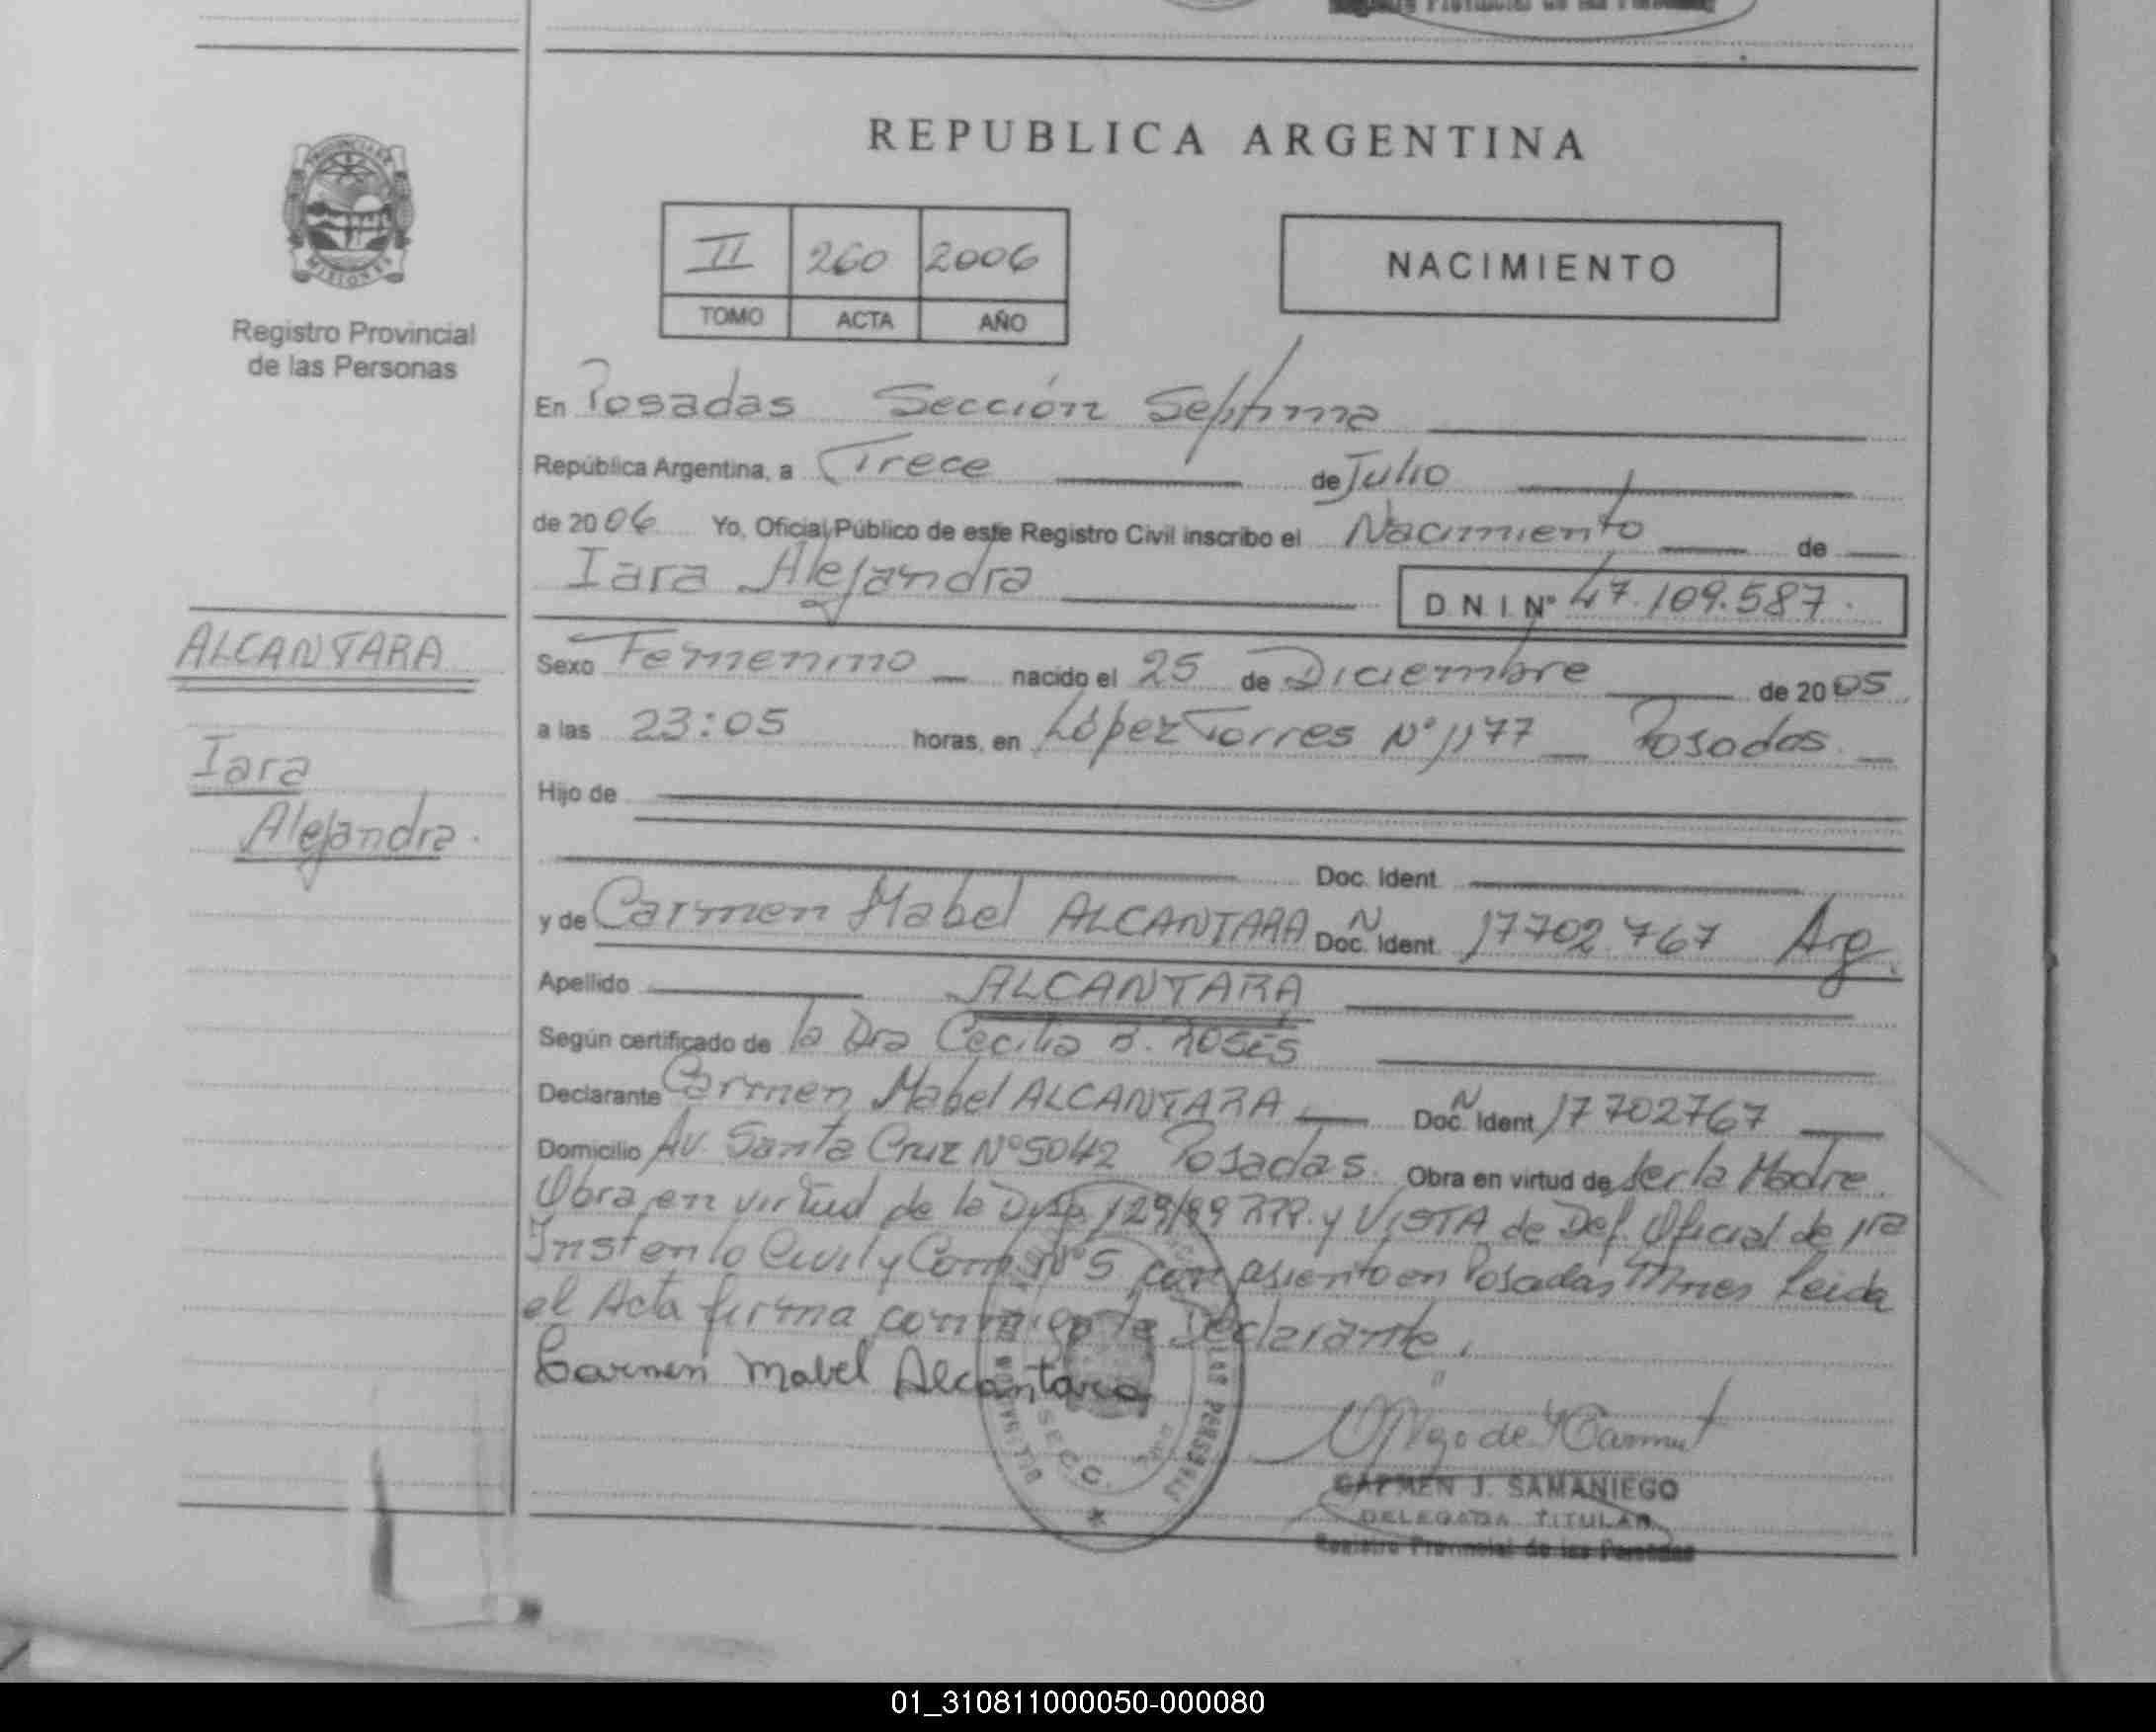 REPUBLICA ARGENTINA
PROVINCIA DE
MISIONES
Registro Provincial
de las Personas
II 260 2006
TOMO ACTA AÑO
NACIMIENTO
En Posadas Sección Septima
República Argentina, a Trece de Julio
de 2006 Yo, Oficial Público de este Registro Civil inscribo el Nacimiento de
Iara Alejandra D.N.I. Nº 47.109.587.
ALCANTARA
Iara
Alejandra.
Sexo Femenino nacido el 25 de Diciembre de 2005
a las 23:05 horas, en López Torres Nº 1177 Posadas
Hijo de
Doc. Ident.
y de Carmen Mabel ALCANTARA Doc. N Ident. 17702.767 Arg.
Apellido ALCANTARA
Según certificado de la Dra Cecilia
Declarante Carmen Mabel ALCANTARA Doc. N Ident 17702767
Domicilio Av. Santa Cruz Nº 5042 Posadas. Obra en virtud de ser la Madre.
Obra en virtud de la Disp. 129/99 y VISTA de Def. Oficial de 1ra
Inst en lo Civil y Com Nº 5 con asiento en Posadas Mnes Leida
el Acta firma conmigo la Declarante.
Carmen Mabel Alcantara
SECC.
CARMEN J. SAMANIEGO
DELEGADA TITULAR
Registro Provincial de las Personas
01_310811000050-000080